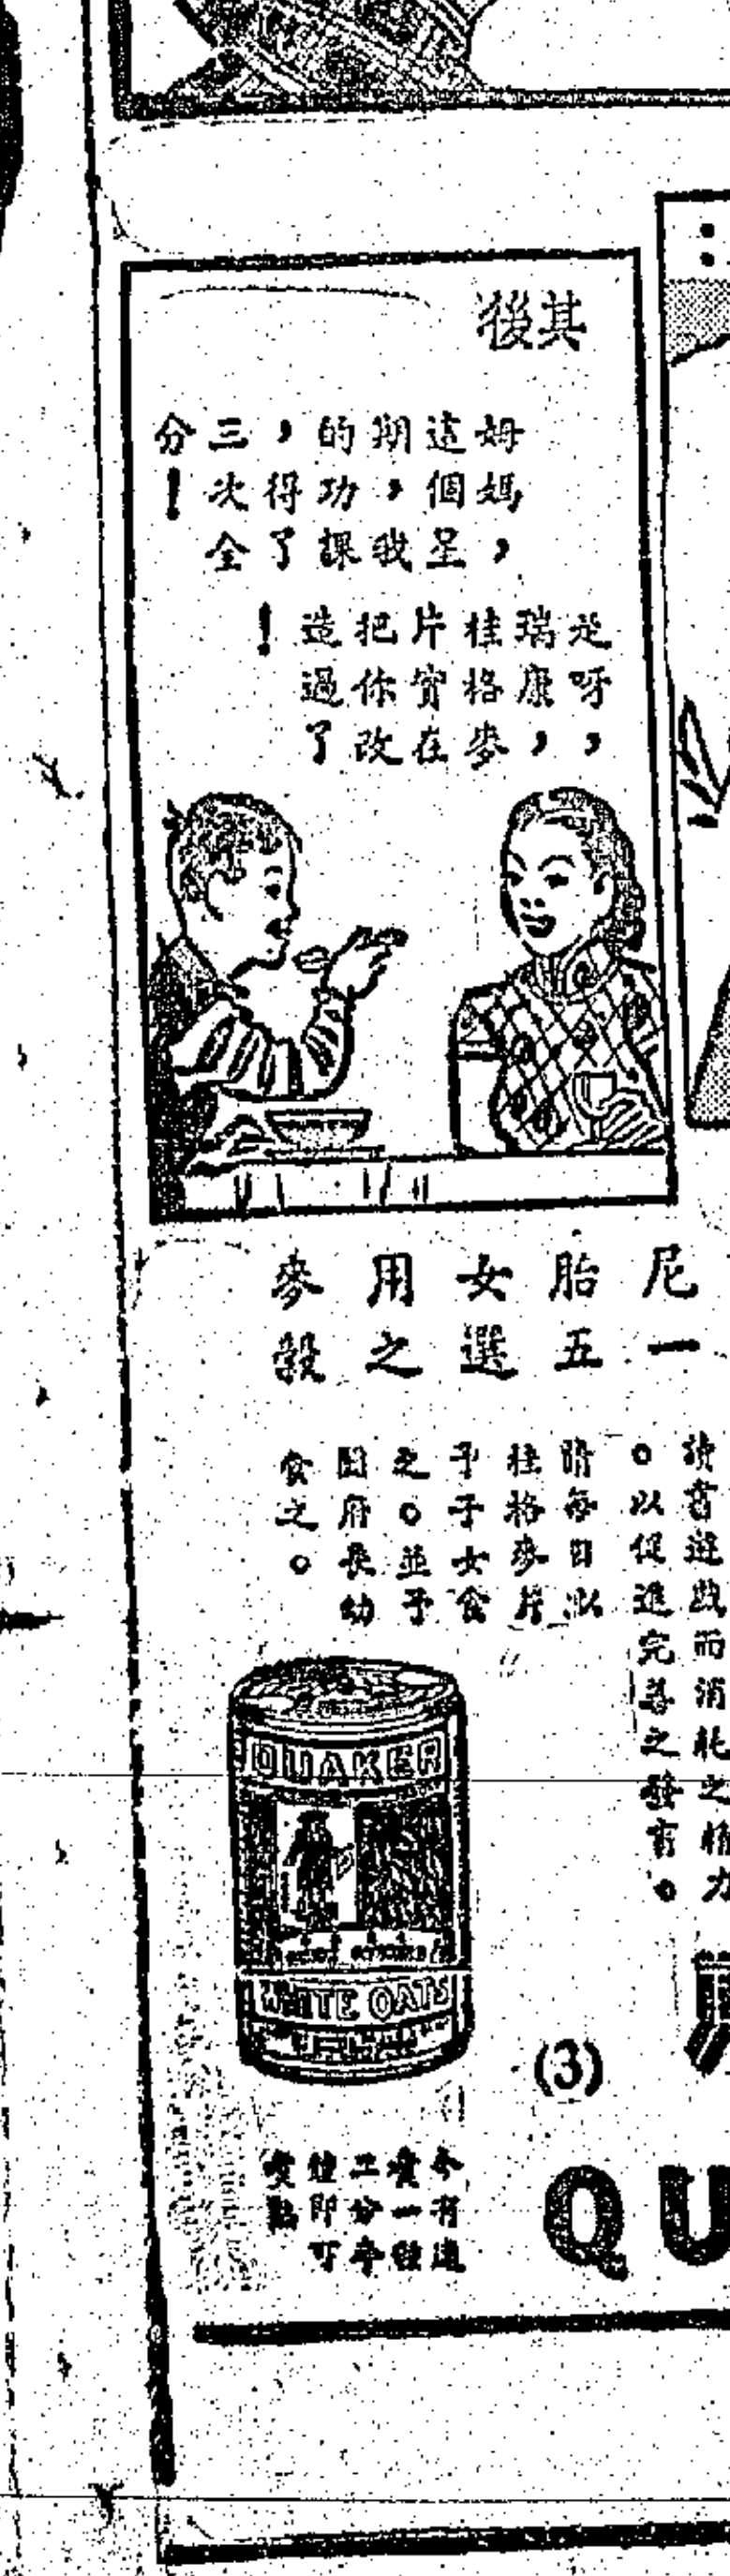 其後
姆媽，
這個星
期，我
的功課
，得了
三次全
分！
是呀，
瑞康，
桂格麥
片實在
把你改
造過了
！
尼一
胎五
女選
用之
麥穀
讀書遊戲而消耗之精力
。以促進完善之發育。
請每日以
桂格麥片
予子女食
之。並予
閤府長幼
食之。
QUAKER
WHITE OATS
(3)
今有速
煮一種
二分半
鐘即可
QU